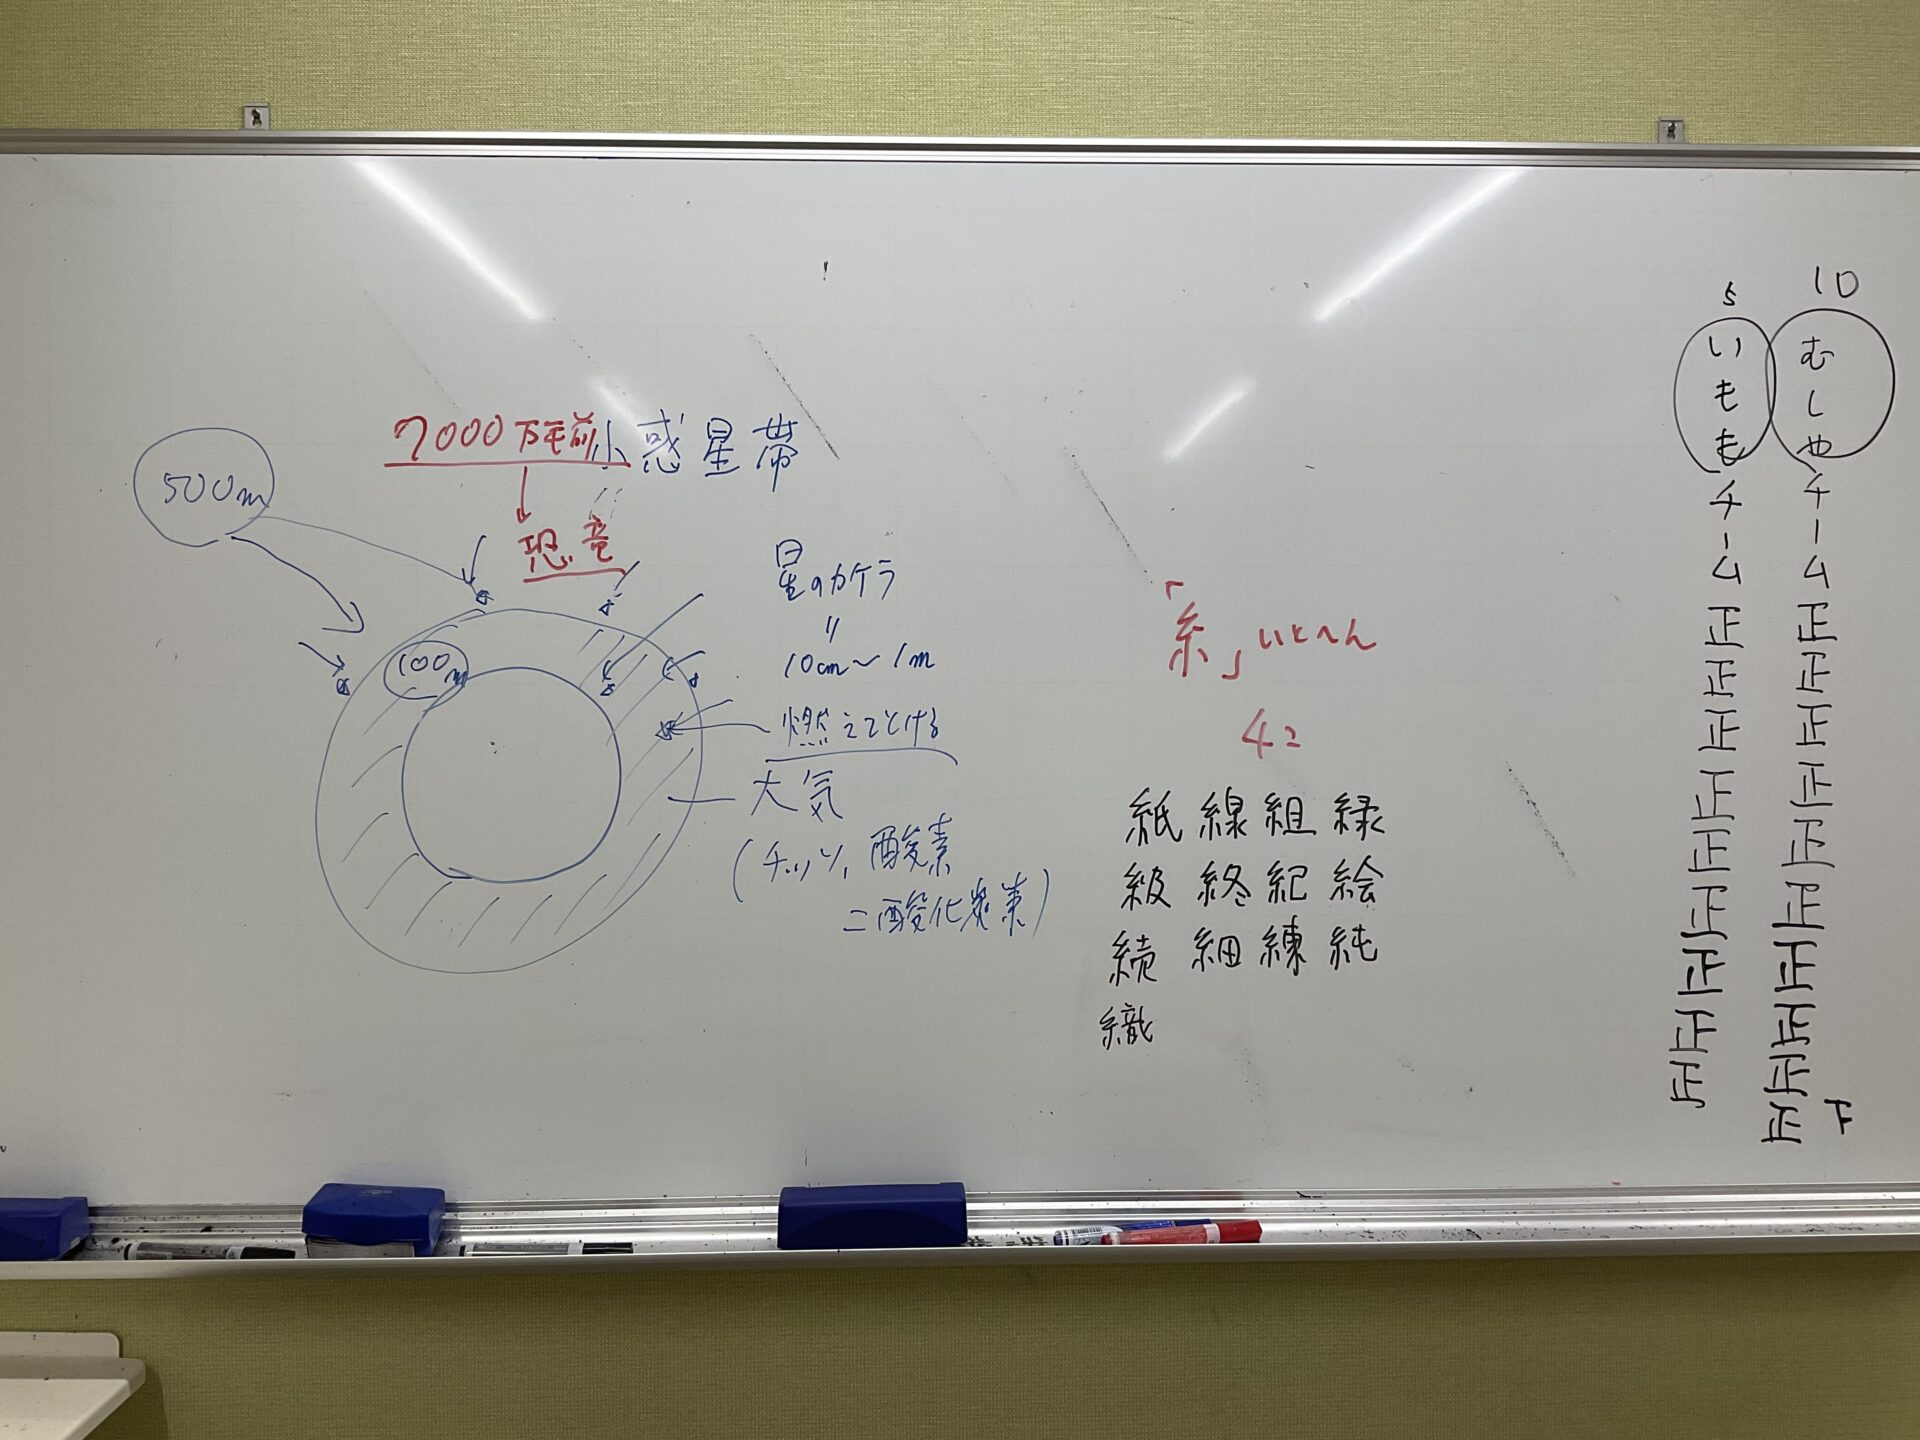 500m
7000万年前
小惑星帯
恐竜
100m
星のカケラ
〃
10cm～1m
燃えてとける
大気
(チッソ、酸素
二酸化炭素)
「糸」いとへん
4コ
紙 線 組 緑
級 終 紀 絵
続 細 練 純
織
10
むしやチーム正正正正正正正正正正
下
5
いももチーム正正正正正正正正正